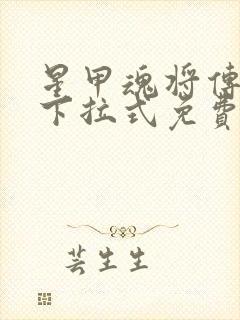 星甲魂将傳
下拉式免費
芸生生